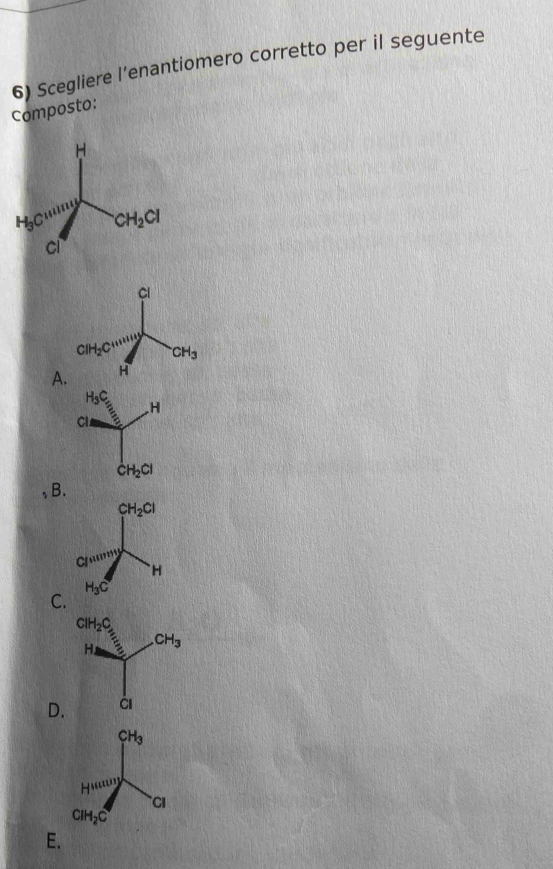 6) Scegliere l'enantiomero corretto per il seguente
Composto:
H
H₃C
CH₂Cl
Cl
Cl
ClH₂C
CH₃
H
A.
H₃C
H
Cl
CH₂Cl
B.
CH₂Cl
Cl
H
H₃C
C.
ClH₂C
CH₃
H
Cl
D.
CH₃
H
Cl
ClH₂C
E.